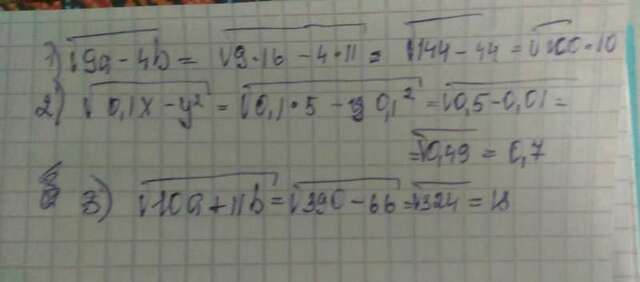 1) √9a - 4b = √9·16 - 4·11 = √144 - 44 = √100 = 10
2) √0,1x - y² = √0,1·5 - 0,1² = √0,5 - 0,01 =
= √0,49 = 0,7
3) √10a + 11b = √390 - 66 = √324 = 18